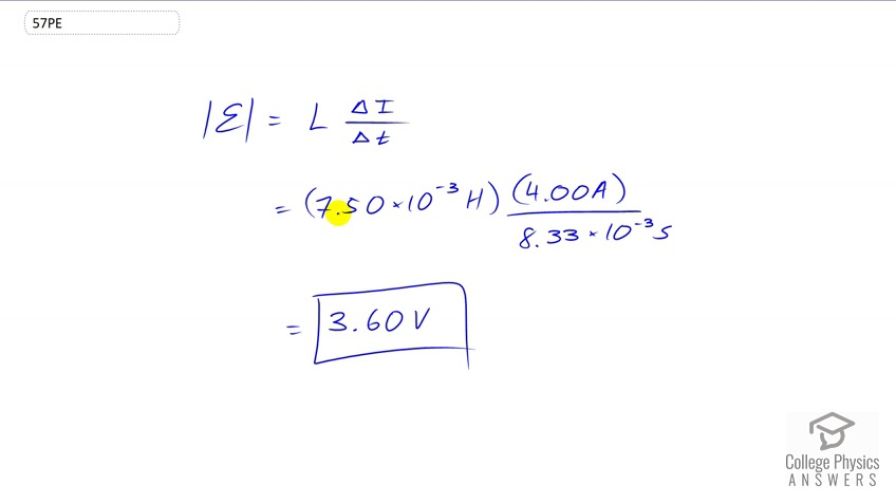 57PE
|ℰ| = L ΔI/Δt
= (7.50 × 10⁻³ H) (4.00A)/8.33 × 10⁻³ s
= 3.60 V
College Physics
ANSWERS